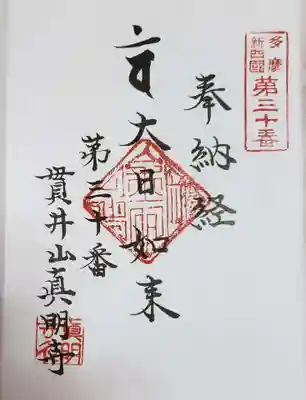 多摩
新四國
第三十番
奉納経
大日如来
第三十番
貫井山真明寺
真明